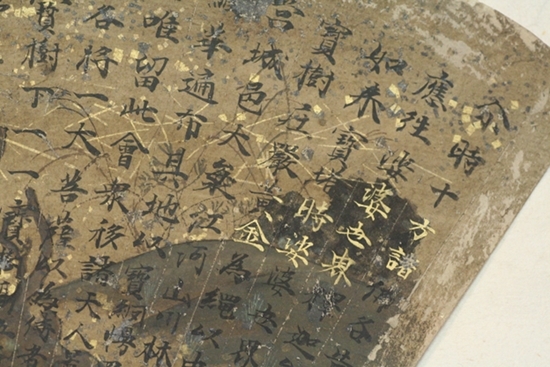 尒時十方諸佛各
應往娑婆世界釋迦
如来寶塔時娑婆世
寶樹莊嚴黃金為繩以
營城邑大海江河山川林
華遍布其地以寶網幔
唯留此會衆移諸天人
各將一大菩薩以為侍者
寶樹下一一寶